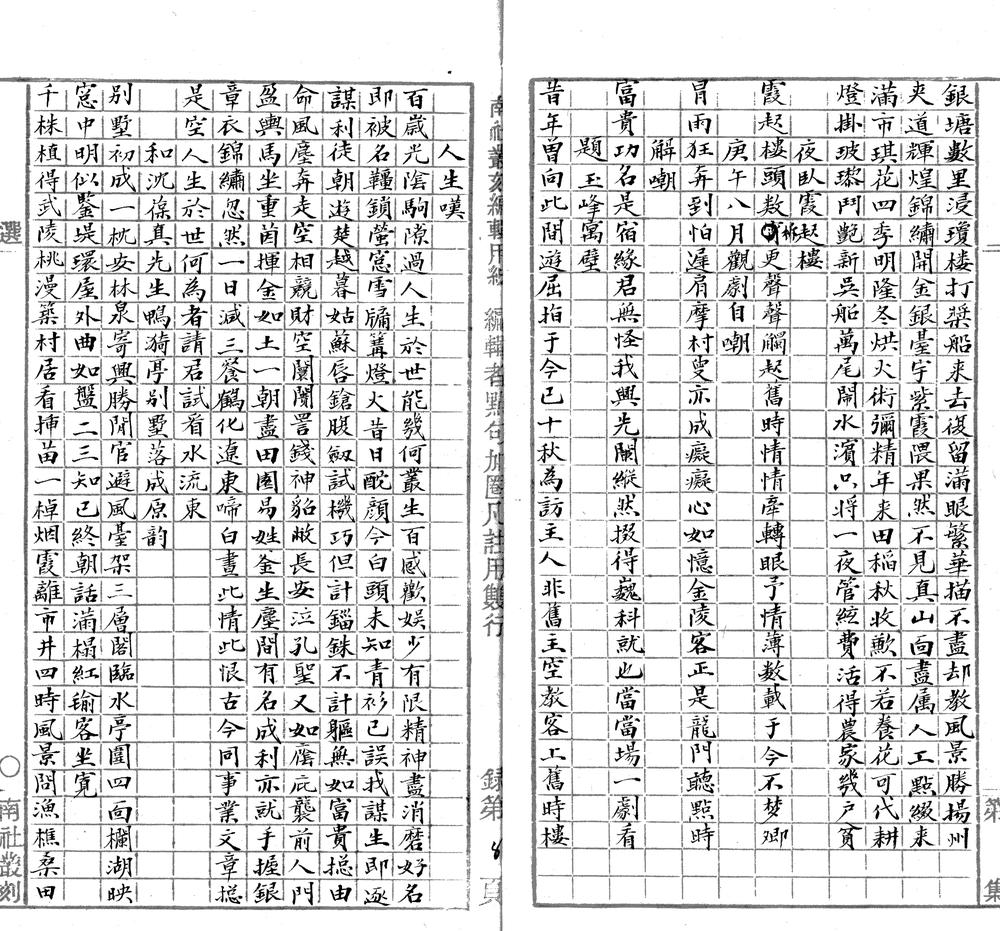 銀塘數里浸瓊楼打槳船来去復留滿眼繁華描不盡却教風景勝揚州
夾道輝煌錦繡開金銀臺宇紫霞隈果然不見真山面盡属人工點綴来
滿市琪花四季明隆冬烘火術彌精年来田稻秋收歉不若養花可代耕
燈掛玻瓈鬥艶新吳船萬尾鬧水濱只将一夜管絃費活得農家幾户貧
夜臥霞起樓
霞起楼頭数柝更聲聲觸起舊時情情牽轉眼予情薄數載于今不梦卿
庚午八月觀劇自嘲
冒雨狂奔到怕遲肩摩村叟亦成癡癡心如憶金陵客正是龍門聽點時
解嘲
富貴功名是宿緣君無怪我興光闌縱然掇得巍科就也當當場一劇看
題玉峰寓壁
昔年曽向此間遊屈指于今已十秋為訪主人非舊主空教客上舊時樓
第 集
南社叢刻編輯用紙 編輯者點句加圈凡註用雙行 錄第 8 頁
人生嘆
百歲光陰駒隙過人生於世能幾何叢生百感歡娱少有限精神盡消磨好名
即被名韁鎖螢窓雪牖篝燈火昔日酡顔今白頭未知青衫已誤我謀生即逐
謀利徒朝遊楚越暮姑蘇唇鎗腹劔試機巧但計錙銖不計軀無如富貴捴由
命風塵奔走空相競財空闤闠詈錢神貂敝長安泣孔聖又如廕庇襲前人門
盈輿馬坐重茵揮金如土一朝盡田園易姓釜生塵間有名成利亦就手握銀
章衣錦繡忽然一日減三餐鶴化遼東啼白晝此情此恨古今同事業文章捴
是空人生於世何為者請君試看水流東
和沈葆真先生鴨漪亭别墅落成原韵
别墅初成一枕安林泉寄興勝閒官避風臺架三層閣臨水亭圍四面欄湖映
窓中明似鑒堤環屋外曲如盤二三知已終朝話滿榻紅輸客坐寛
千株植得武陵桃漫築村居看插苗一棹烟霞離市井四時風景問漁樵桑田
選 〇 南社叢刻